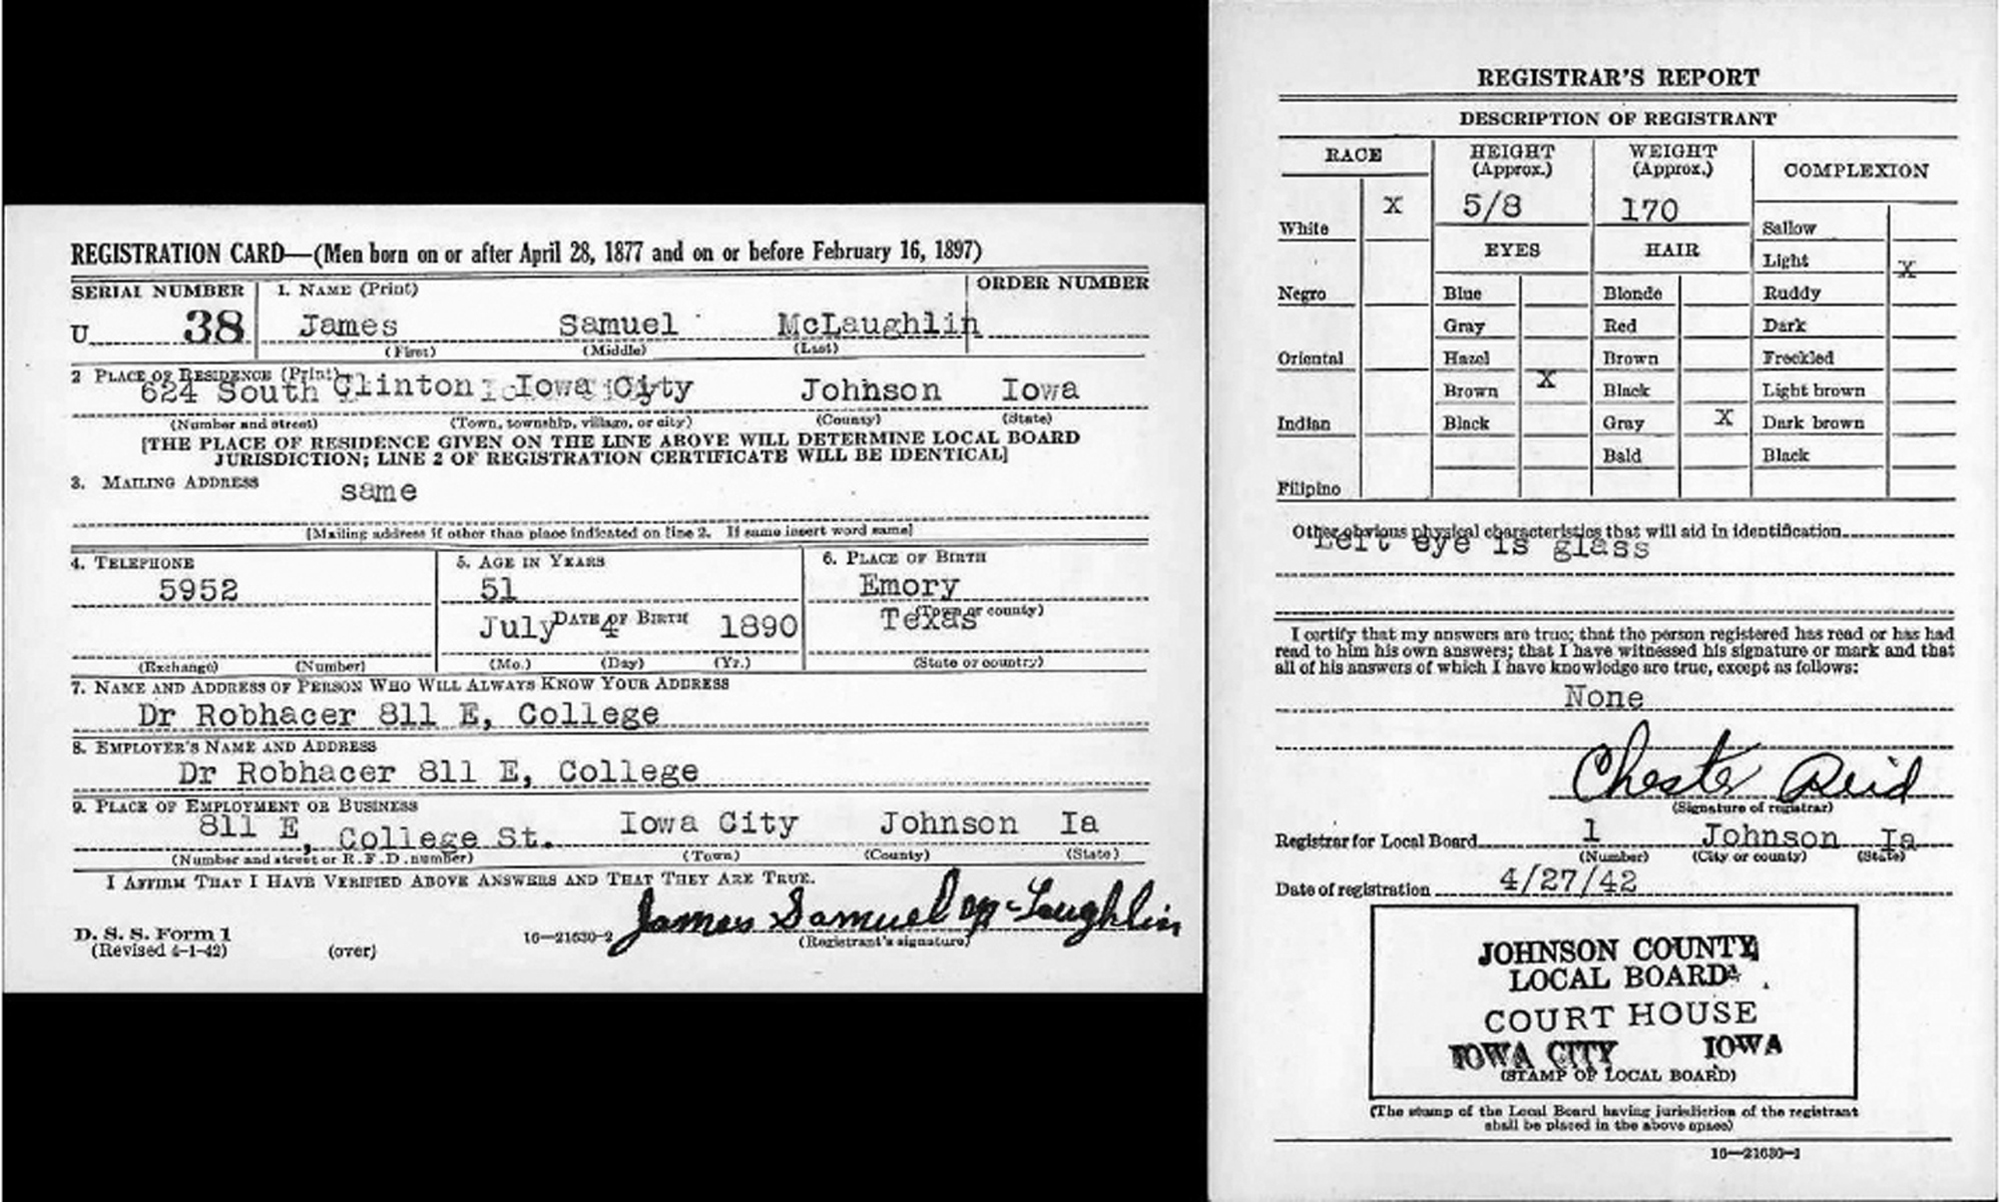 REGISTRATION CARD—(Men born on or after April 28, 1877 and on or before February 16, 1897)
SERIAL NUMBER
1. NAME (Print)
ORDER NUMBER
U 38
James Samuel McLaughlin
(First) (Middle) (Last)
2 PLACE OF RESIDENCE (Print)
624 South Clinton Iowa City Johnson Iowa
(Number and street) (Town, township, village, or city) (County) (State)
[THE PLACE OF RESIDENCE GIVEN ON THE LINE ABOVE WILL DETERMINE LOCAL BOARD
JURISDICTION; LINE 2 OF REGISTRATION CERTIFICATE WILL BE IDENTICAL]
3. MAILING ADDRESS
same
[Mailing address if other than place indicated on line 2. If same insert word same]
4. TELEPHONE
5. AGE IN YEARS
6. PLACE OF BIRTH
5952
51
Emory
(Town or county)
DATE OF BIRTH
July 4 1890
Texas
(Exchange) (Number)
(Mo.) (Day) (Yr.)
(State or country)
7. NAME AND ADDRESS OF PERSON WHO WILL ALWAYS KNOW YOUR ADDRESS
Dr Robhacer 811 E, College
8. EMPLOYER'S NAME AND ADDRESS
Dr Robhacer 811 E, College
9. PLACE OF EMPLOYMENT OR BUSINESS
811 E, College St. Iowa City Johnson Ia
(Number and street or R. F. D. number) (Town) (County) (State)
I AFFIRM THAT I HAVE VERIFIED ABOVE ANSWERS AND THAT THEY ARE TRUE.
James Samuel McLaughlin
D. S. S. Form 1
(Revised 4-1-42)
(over)
16—21630-2
(Registrant's signature)
REGISTRAR'S REPORT
DESCRIPTION OF REGISTRANT
RACE
HEIGHT
(Approx.)
WEIGHT
(Approx.)
COMPLEXION
White X
5/8
170
Sallow
EYES
HAIR
Light X
Negro
Blue
Blonde
Ruddy
Gray
Red
Dark
Oriental
Hazel
Brown
Freckled
Brown X
Black
Light brown
Indian
Black
Gray X
Dark brown
Bald
Black
Filipino
Other obvious physical characteristics that will aid in identification
Left eye is glass
I certify that my answers are true; that the person registered has read or has had
read to him his own answers; that I have witnessed his signature or mark and that
all of his answers of which I have knowledge are true, except as follows:
None
Chester Reid
(Signature of registrar)
Registrar for Local Board 1 Johnson Ia
(Number) (City or county) (State)
Date of registration 4/27/42
JOHNSON COUNTY
LOCAL BOARD
COURT HOUSE
IOWA CITY IOWA
(STAMP OF LOCAL BOARD)
(The stamp of the Local Board having jurisdiction of the registrant
shall be placed in the above space)
16—21630-1